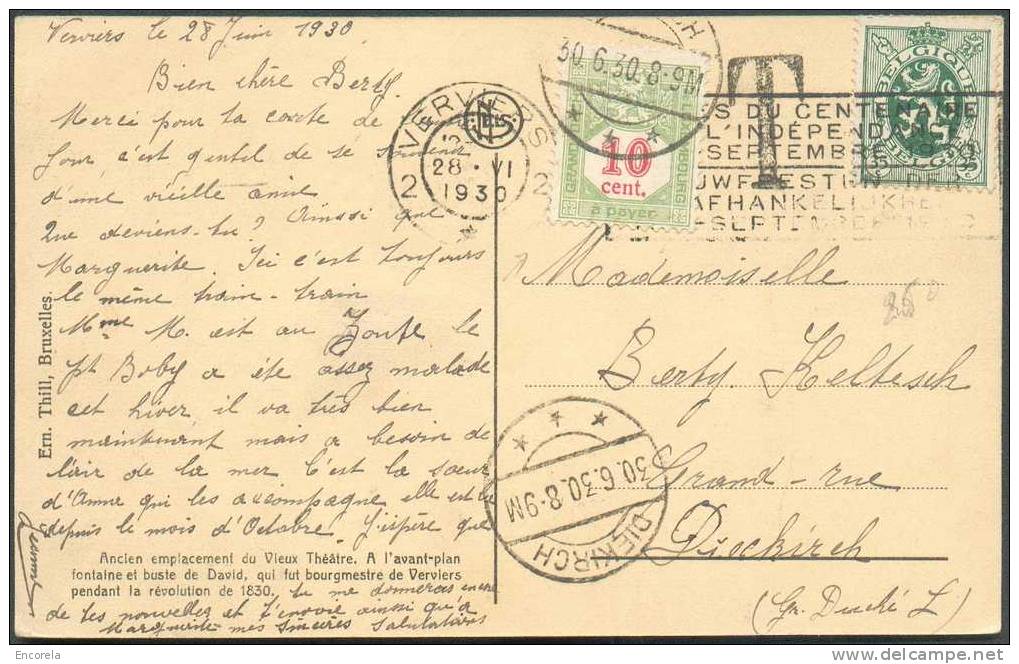 Verviers le 28 Juin 1930
Bien chère Berty.
Merci pour ta carte de
jour c'est gentil de se souvenir
d'une vieille amie
Que deviens-tu ? Ainssi que
Marguerite. Ici c'est toujours
le même train-train
Mme M. est au Zoute le
pt Boby a été assez malade
cet hiver il va très bien
maintenant mais a besoin de
l'air de la mer C'est la sœur
d'Anna qui les accompagne elle est
depuis le mois d'Octobre J'espère que
Ancien emplacement du Vieux Théâtre. A l'avant-plan
fontaine et buste de David, qui fut bourgmestre de Verviers
pendant la révolution de 1830.
tu me donneras encore
de tes nouvelles et t'envoie ainsi qu'à
Marguerite mes sincères salutations
Ern. Thill, Bruxelles.
VERVIERS
28 · VI
1930
2 2
30.6.30.8-9M
GRAND
10
cent.
à payer
T
BELGIQUE
BELGIË
DU CENTENAIRE
L'INDÉPENDANCE
SEPTEMBRE
AFHANKELIJKHEID
SEPTEMBER
Mademoiselle
Berty Keltesch
Grand-rue
Dieckirch
(Gr. Duché L)
30.6.30.8-9M
DIEKIRCH
© Encorela
www.delcampe.net